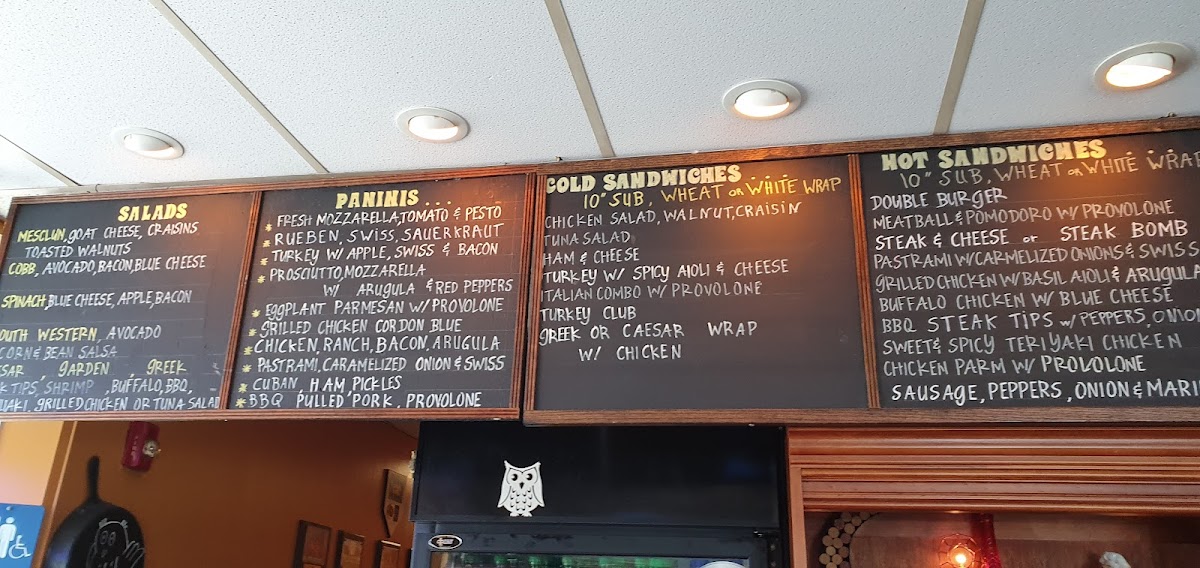 SALADS
MESCLUN, GOAT CHEESE, CRAISINS
TOASTED WALNUTS
COBB, AVOCADO, BACON, BLUE CHEESE
SPINACH, BLUE CHEESE, APPLE, BACON
OUTH WESTERN, AVOCADO
CORN & BEAN SALSA
ESAR, GARDEN, GREEK
K TIPS, SHRIMP, BUFFALO, BBQ,
IYAKI, GRILLED CHICKEN OR TUNA SALAD
PANINIS...
* FRESH MOZZARELLA, TOMATO & PESTO
* RUEBEN, SWISS, SAUERKRAUT
* TURKEY W/ APPLE, SWISS & BACON
* PROSCIUTTO, MOZZARELLA
W/ ARUGULA & RED PEPPERS
* EGGPLANT PARMESAN W/ PROVOLONE
* GRILLED CHICKEN CORDON BLUE
* CHICKEN, RANCH, BACON, ARUGULA
* PASTRAMI, CARAMELIZED ONION & SWISS
* CUBAN, HAM, PICKLES
* BBQ PULLED PORK, PROVOLONE
COLD SANDWICHES...
10" SUB, WHEAT OR WHITE WRAP
CHICKEN SALAD, WALNUT, CRAISIN
TUNA SALAD
HAM & CHEESE
TURKEY W/ SPICY AIOLI & CHEESE
ITALIAN COMBO W/ PROVOLONE
TURKEY CLUB
GREEK OR CAESAR WRAP
W/ CHICKEN
HOT SANDWICHES...
10" SUB, WHEAT OR WHITE WRAP
DOUBLE BURGER
MEATBALL & POMODORO W/ PROVOLONE
STEAK & CHEESE or STEAK BOMB
PASTRAMI W/ CARMELIZED ONIONS & SWISS
GRILLED CHICKEN W/ BASIL AIOLI & ARUGULA
BUFFALO CHICKEN W/ BLUE CHEESE
BBQ STEAK TIPS W/ PEPPERS, ONION
SWEET & SPICY TERIYAKI CHICKEN
CHICKEN PARM W/ PROVOLONE
SAUSAGE, PEPPERS, ONION & MARI